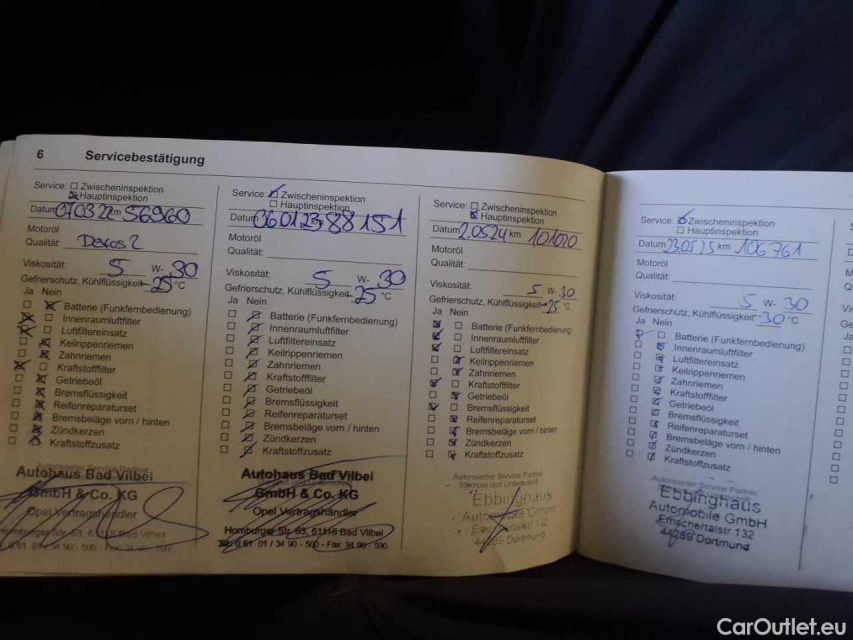 6 Servicebestätigung
Service: Zwischeninspektion
Hauptinspektion
Datum 070322 km 56960
Motoröl
Qualität: Dexos 2
Viskosität: 5 W- 30
Gefrierschutz, Kühlflüssigkeit -25 °C
Ja Nein
Batterie (Funkfernbedienung)
Innenraumluftfilter
Luftfiltereinsatz
Keilrippenriemen
Zahnriemen
Kraftstofffilter
Getriebeöl
Bremsflüssigkeit
Reifenreparaturset
Bremsbeläge vorn / hinten
Zündkerzen
Kraftstoffzusatz
Autohaus Bad Vilbel
GmbH & Co. KG
Opel Vertragshändler
Homburger Str. 63, 61118 Bad Vilbel
Service: Zwischeninspektion
Hauptinspektion
Datum 060123 88151
Motoröl
Qualität:
Viskosität: 5 W- 30
Gefrierschutz, Kühlflüssigkeit -25 °C
Ja Nein
Batterie (Funkfernbedienung)
Innenraumluftfilter
Luftfiltereinsatz
Keilrippenriemen
Zahnriemen
Kraftstofffilter
Getriebeöl
Bremsflüssigkeit
Reifenreparaturset
Bremsbeläge vorn / hinten
Zündkerzen
Kraftstoffzusatz
Autohaus Bad Vilbel
GmbH & Co. KG
Opel Vertragshändler
Homburger Str. 63, 61118 Bad Vilbel
Tel. 0 61 01 / 34 90 - 500 - Fax 34 90 - 590
Service: Zwischeninspektion
Hauptinspektion
Datum 2.05.24 km 101020
Motoröl
Qualität:
Viskosität: 5 W- 30
Gefrierschutz, Kühlflüssigkeit -25 °C
Ja Nein
Batterie (Funkfernbedienung)
Innenraumluftfilter
Luftfiltereinsatz
Keilrippenriemen
Zahnriemen
Kraftstofffilter
Getriebeöl
Bremsflüssigkeit
Reifenreparaturset
Bremsbeläge vorn / hinten
Zündkerzen
Kraftstoffzusatz
Autorisierter Service Partner
Stempel und Unterschrift
Ebbinghaus
Automobile GmbH
44289 Dortmund
Service: Zwischeninspektion
Hauptinspektion
Datum 23.05.25 km 106761
Motoröl
Qualität:
Viskosität: 5 W- 30
Gefrierschutz, Kühlflüssigkeit -30 °C
Ja Nein
Batterie (Funkfernbedienung)
Innenraumluftfilter
Luftfiltereinsatz
Keilrippenriemen
Zahnriemen
Kraftstofffilter
Getriebeöl
Bremsflüssigkeit
Reifenreparaturset
Bremsbeläge vorn / hinten
Zündkerzen
Kraftstoffzusatz
Autorisierter Service Partner
Ebbinghaus
Automobile GmbH
Emschertalstr 132
44289 Dortmund
CarOutlet.eu